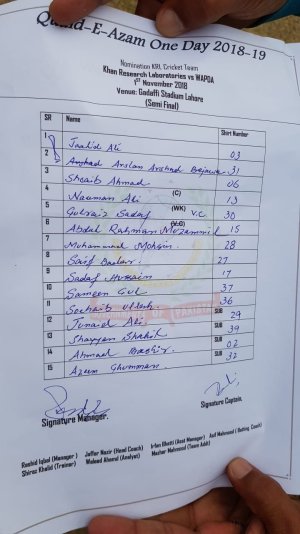 Quaid-E-Azam One Day 2018-19
Nomination KRL Cricket Team
Khan Research Laboratories vs WAPDA
1st November 2018
Venue: Gadaffi Stadium Lahore
(Semi Final)
SR Name Shirt Number
1 Ali 03
2 Arshad 31
3 Shoaib Ahmad 06
4 Nauman Ali (C) 13
5 Gulraiz Sadaf (WK) V.C 30
6 Abdul Rahman Muzammil (V.C) 15
7 Muhammad Mohsin 28
8 Saif 27
9 Sadaf Hussain 17
10 Sameen Gul 37
11 36
12 Junaid Ali SUB 29
13 SUB 39
14 Ahmad SUB 02
15 Azeem Ghumman SUB 32
Signature Manager.
Signature Captain.
Rashid Iqbal (Manager) Jaffar Nazir (Head Coach) Irfan Bhatti (Asst Manager) Asif Mahmood (Batting Coach)
Shiraz Khalid (Trainer) Waleed Ahmed (Analyst) Mazhar Mahmood (Team Adit)